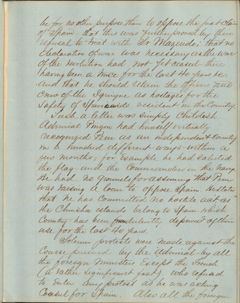 for no other purpose than to oppose the just claims
of Spain that this was further proved by their
refusal to treat with Sr Mazarredo, that no
declaration of war was necessary as the war
of the revolution had not yet ceased there
having been a truce for the last 40 years
and that he should retain the three
of the Iquique as hostages for the
safety of Spaniards resident in the Country.
Such a letter was simply childish
Admiral Pinzon had himself virtually
recognized Peru as an independent Country
in a hundred different ways within a
few months, for example he had saluted
the flag and the Commissioner in the
He had no grounds for assuming that Peru
was raising a loan to oppose Spain. He states
that he has committed no hostile act as
the Chincha islands belong to Spain which
Country has been unjustly deprived of their
use for the last 40 years.
Solemn protests were made against the
Course pursued by the Admiral by all
the foreign Ministers except the French
(a rather significant fact) who refused
to enter any protest as he was acting
Consul for Spain. Also all the foreign